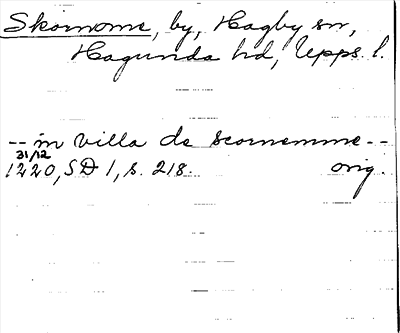 Skornome, by, Hagby sn,
Hagunda hd, Upps. l.
-- in villa de scornemme --
31/12
1220, SD 1, s. 218. orig.